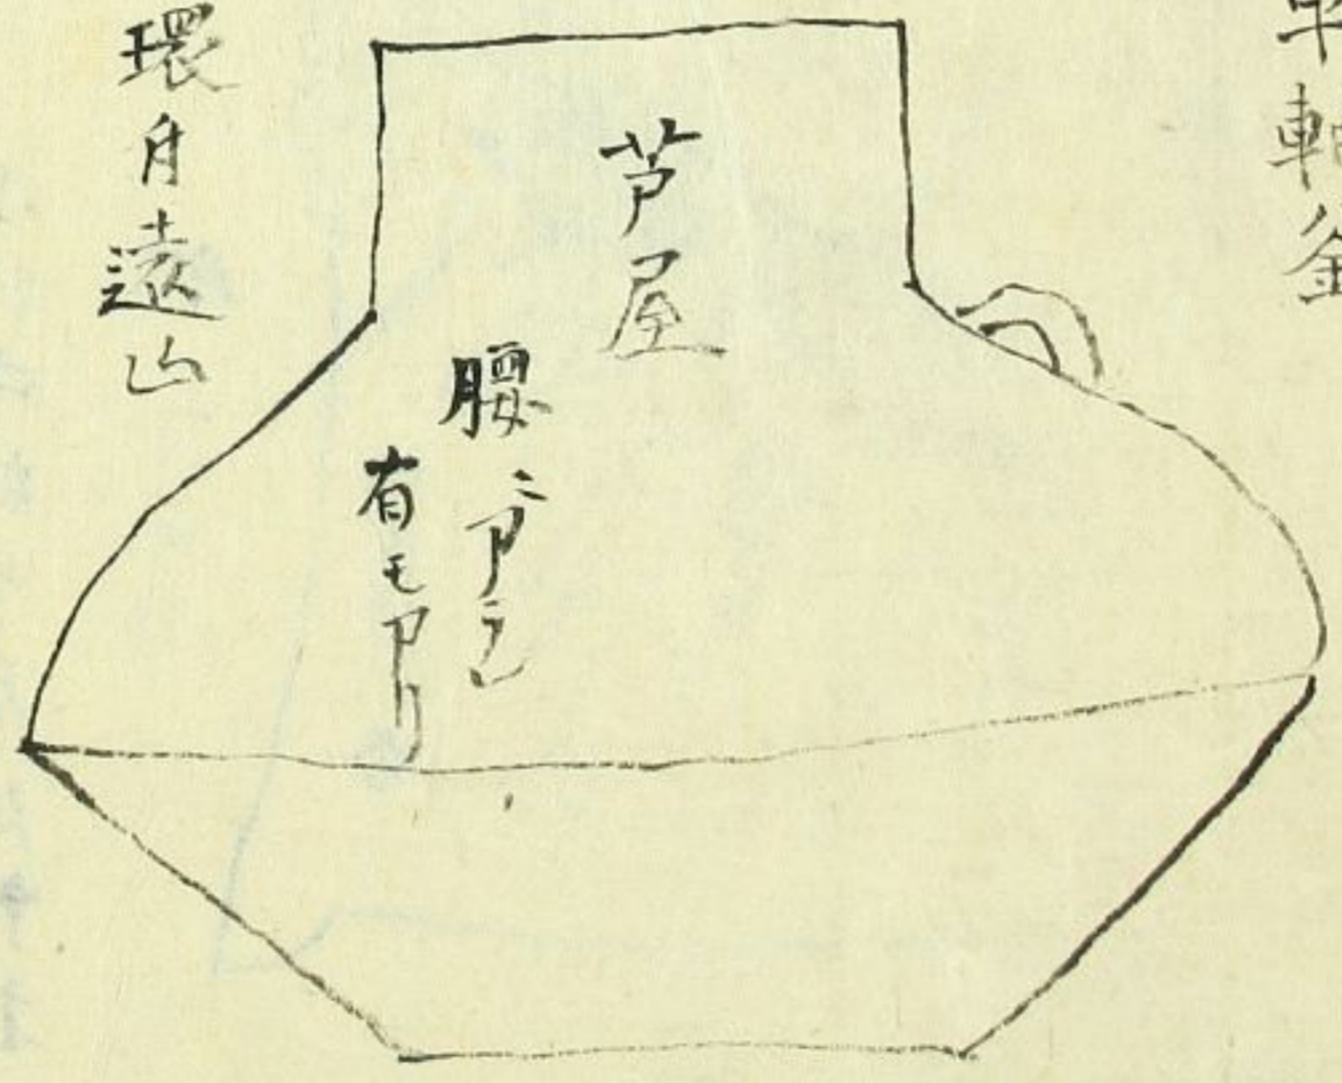 車軸釜
芦屋
腰ニアラレ
有モアリ
環月遠山